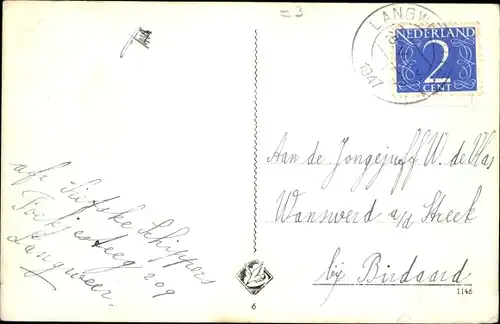 = 3
LANGW
1947
NEDERLAND
2
CENT
Aan de Jongejuff W. de Vlas
Wanswerd a/d Streek
bij Birdaard
afz. Sietske Schippers
209
Langweer.
1146
6